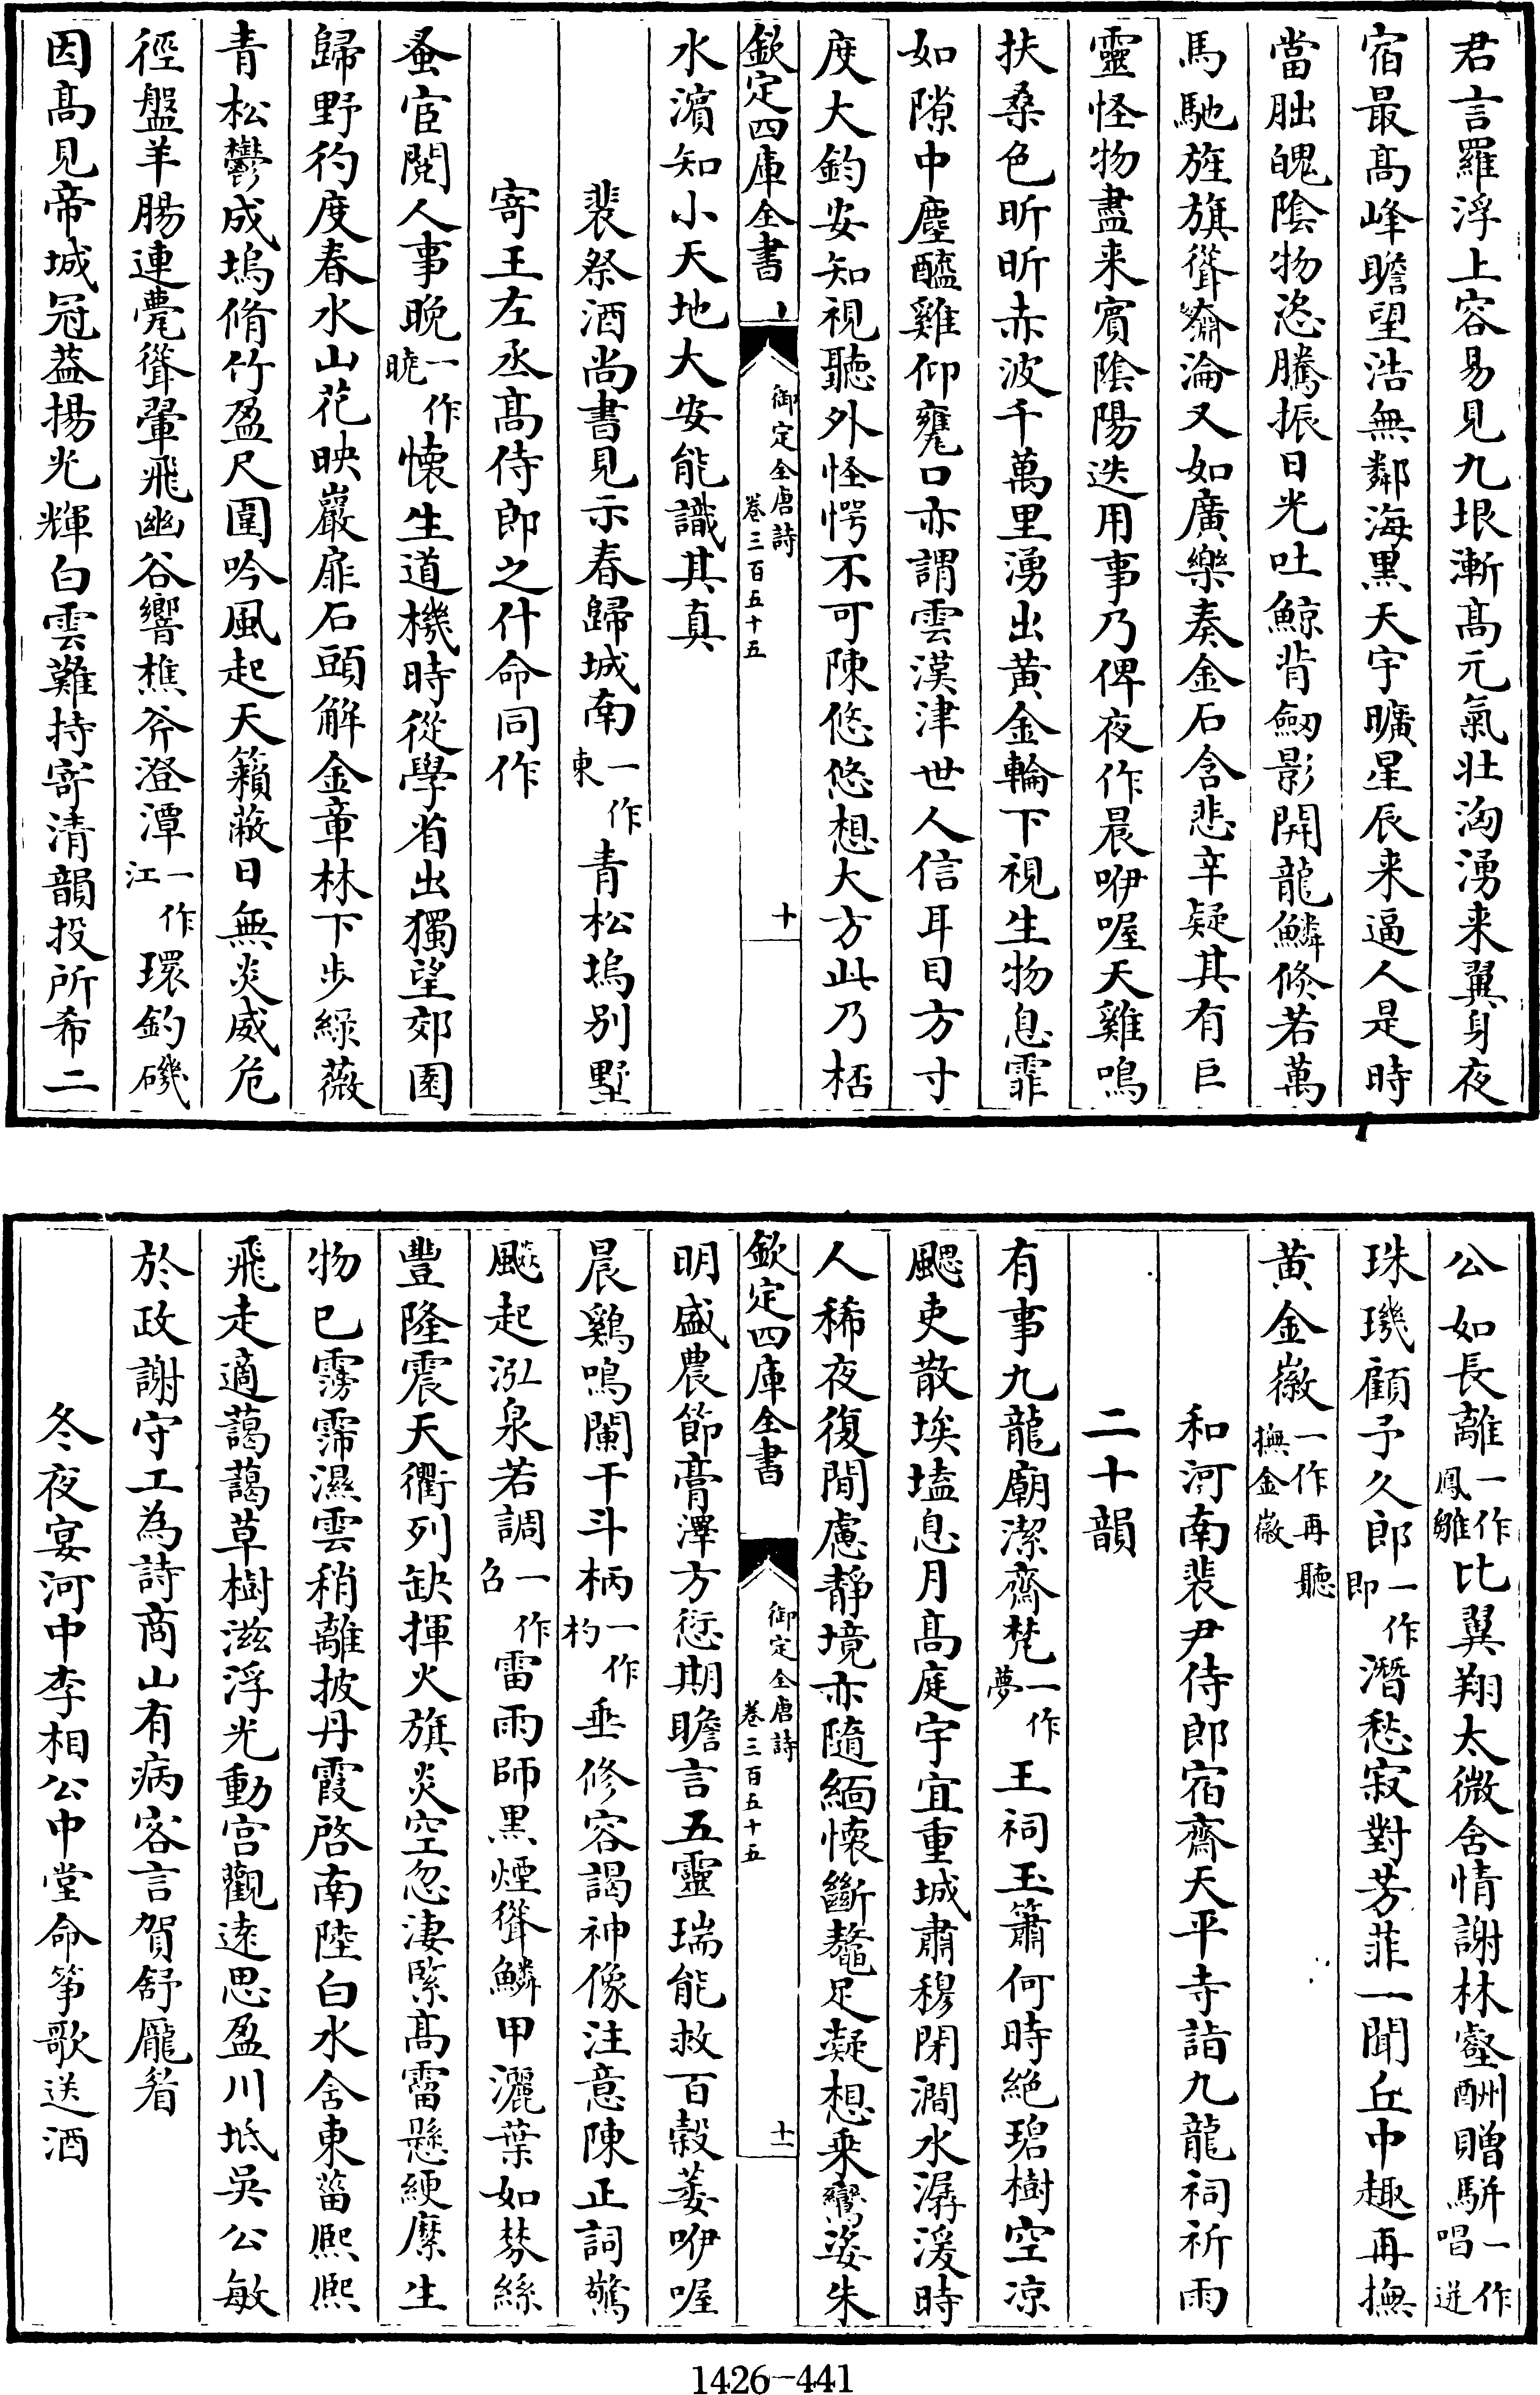 君言羅浮上容易見九垠漸髙元氣壯洶湧来翼身夜
宿最髙峰瞻望浩無鄰海黒天宇曠星辰来逼人是時
當朏魄陰物恣騰振日光吐鯨背劒影開龍鱗倐若萬
馬馳旌旗聳奫淪又如廣樂奏金石含悲辛疑其有巨
靈怪物盡来賓陰陽迭用事乃俾夜作晨咿喔天雞鳴
扶桑色昕昕赤波千萬里湧出黄金輪下視生物息霏
如隙中塵醯雞仰甕口亦謂雲漢津世人信耳目方寸
度大鈞安知視聽外怪愕不可陳悠悠想大方此乃栝
欽定四庫全書 御定全唐詩 卷三百五十五 十
水濱知小天地大安能識其真
裴祭酒尚書見示春歸城南一作東青松塢别墅
寄王左丞髙侍郎之什命同作
蚤宦閱人事晩一作曉懐生道機時從學省出獨望郊園
歸野彴度春水山花映巖扉石頭解金章林下歩綠薇
青松鬱成塢脩竹盈尺圍吟風起天籟蔽日無炎威危
徑盤羊腸連甍聳翬飛幽谷響樵斧澄潭一作江環釣磯
因髙見帝城冠葢揚光輝白雲難持寄清韻投所希二
公如長離一作鳳雛比翼翔太微含情謝林壑酬贈駢一作唱迸
珠璣顧予久郎一作即潛愁寂對芳菲一聞丘中趣再撫
黄金徽一作再聽撫金徽
和河南裴尹侍郎宿齋天平寺詣九龍祠祈雨
二十韻
有事九龍廟潔齋梵一作夢王祠玉簫何時絶碧樹空凉
颸吏散埃壒息月髙庭宇宜重城肅穆閉澗水潺湲時
人稀夜復閒慮靜境亦隨緬懐斷鼇足凝想乘鸞姿朱
欽定四庫全書 御定全唐詩 卷三百五十五 十一
明盛農節膏澤方愆期瞻言五靈瑞能救百穀萎咿喔
晨鷄鳴闌干斗柄一作杓垂修容謁神像注意陳正詞驚
飈起泓泉若調一作召雷雨師黒煙聳鱗甲灑葉如棼絲
豐隆震天衢列缺揮火旗炎空忽淒緊髙霤懸綆縻生
物已霶霈濕雲稍離披丹霞啓南陸白水含東菑熈熈
飛走適藹藹草樹滋浮光動宫觀逺思盈川坻吳公敏
於政謝守工為詩商山有病客言賀舒龎眉
冬夜宴河中李相公中堂命箏歌送酒
1426-441